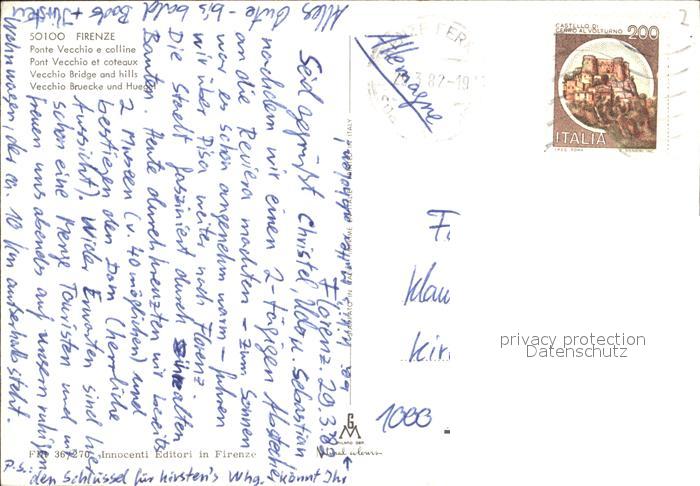 50100 FIRENZE
Ponte Vecchio e colline
Pont Vecchio et coteaux
Vecchio Bridge and hills
Vecchio Bruecke und Huegel
Florenz, 29.3.82
Seid gegrüßt Christel, Udo u. Sebastian
nachdem wir einen 2-tägigen Abstecher
an die Reviera machten - zum Sonnen
war es schön angenehm warm - fuhren
wir über Pisa weiter nach Florenz.
Die Stadt fasziniert durch alten
Bauten. Heute durchkreuzten wir bereits
2 Museen (v. 40 möglichen) und
bestiegen den Dom (herrliche
Aussicht). Wider Erwarten sind hier
schon eine Menge Touristen und wir
freuen uns abends auf unsern ruhigen
Wohnwagen, der ca. 10 km außerhalb steht.
Alles Gute - bis bald
Bodo + Kirsten
P.S.: den Schlüssel für Kirsten's Whg. könnt Ihr
bei Mutter abholen!
Allemagne
3.82-19
CASTELLO DI
CERRO AL VOLTURNO
200
ITALIA
Klau
Kir
1000
privacy protection
Datenschutz
Innocenti Editori in Firenze